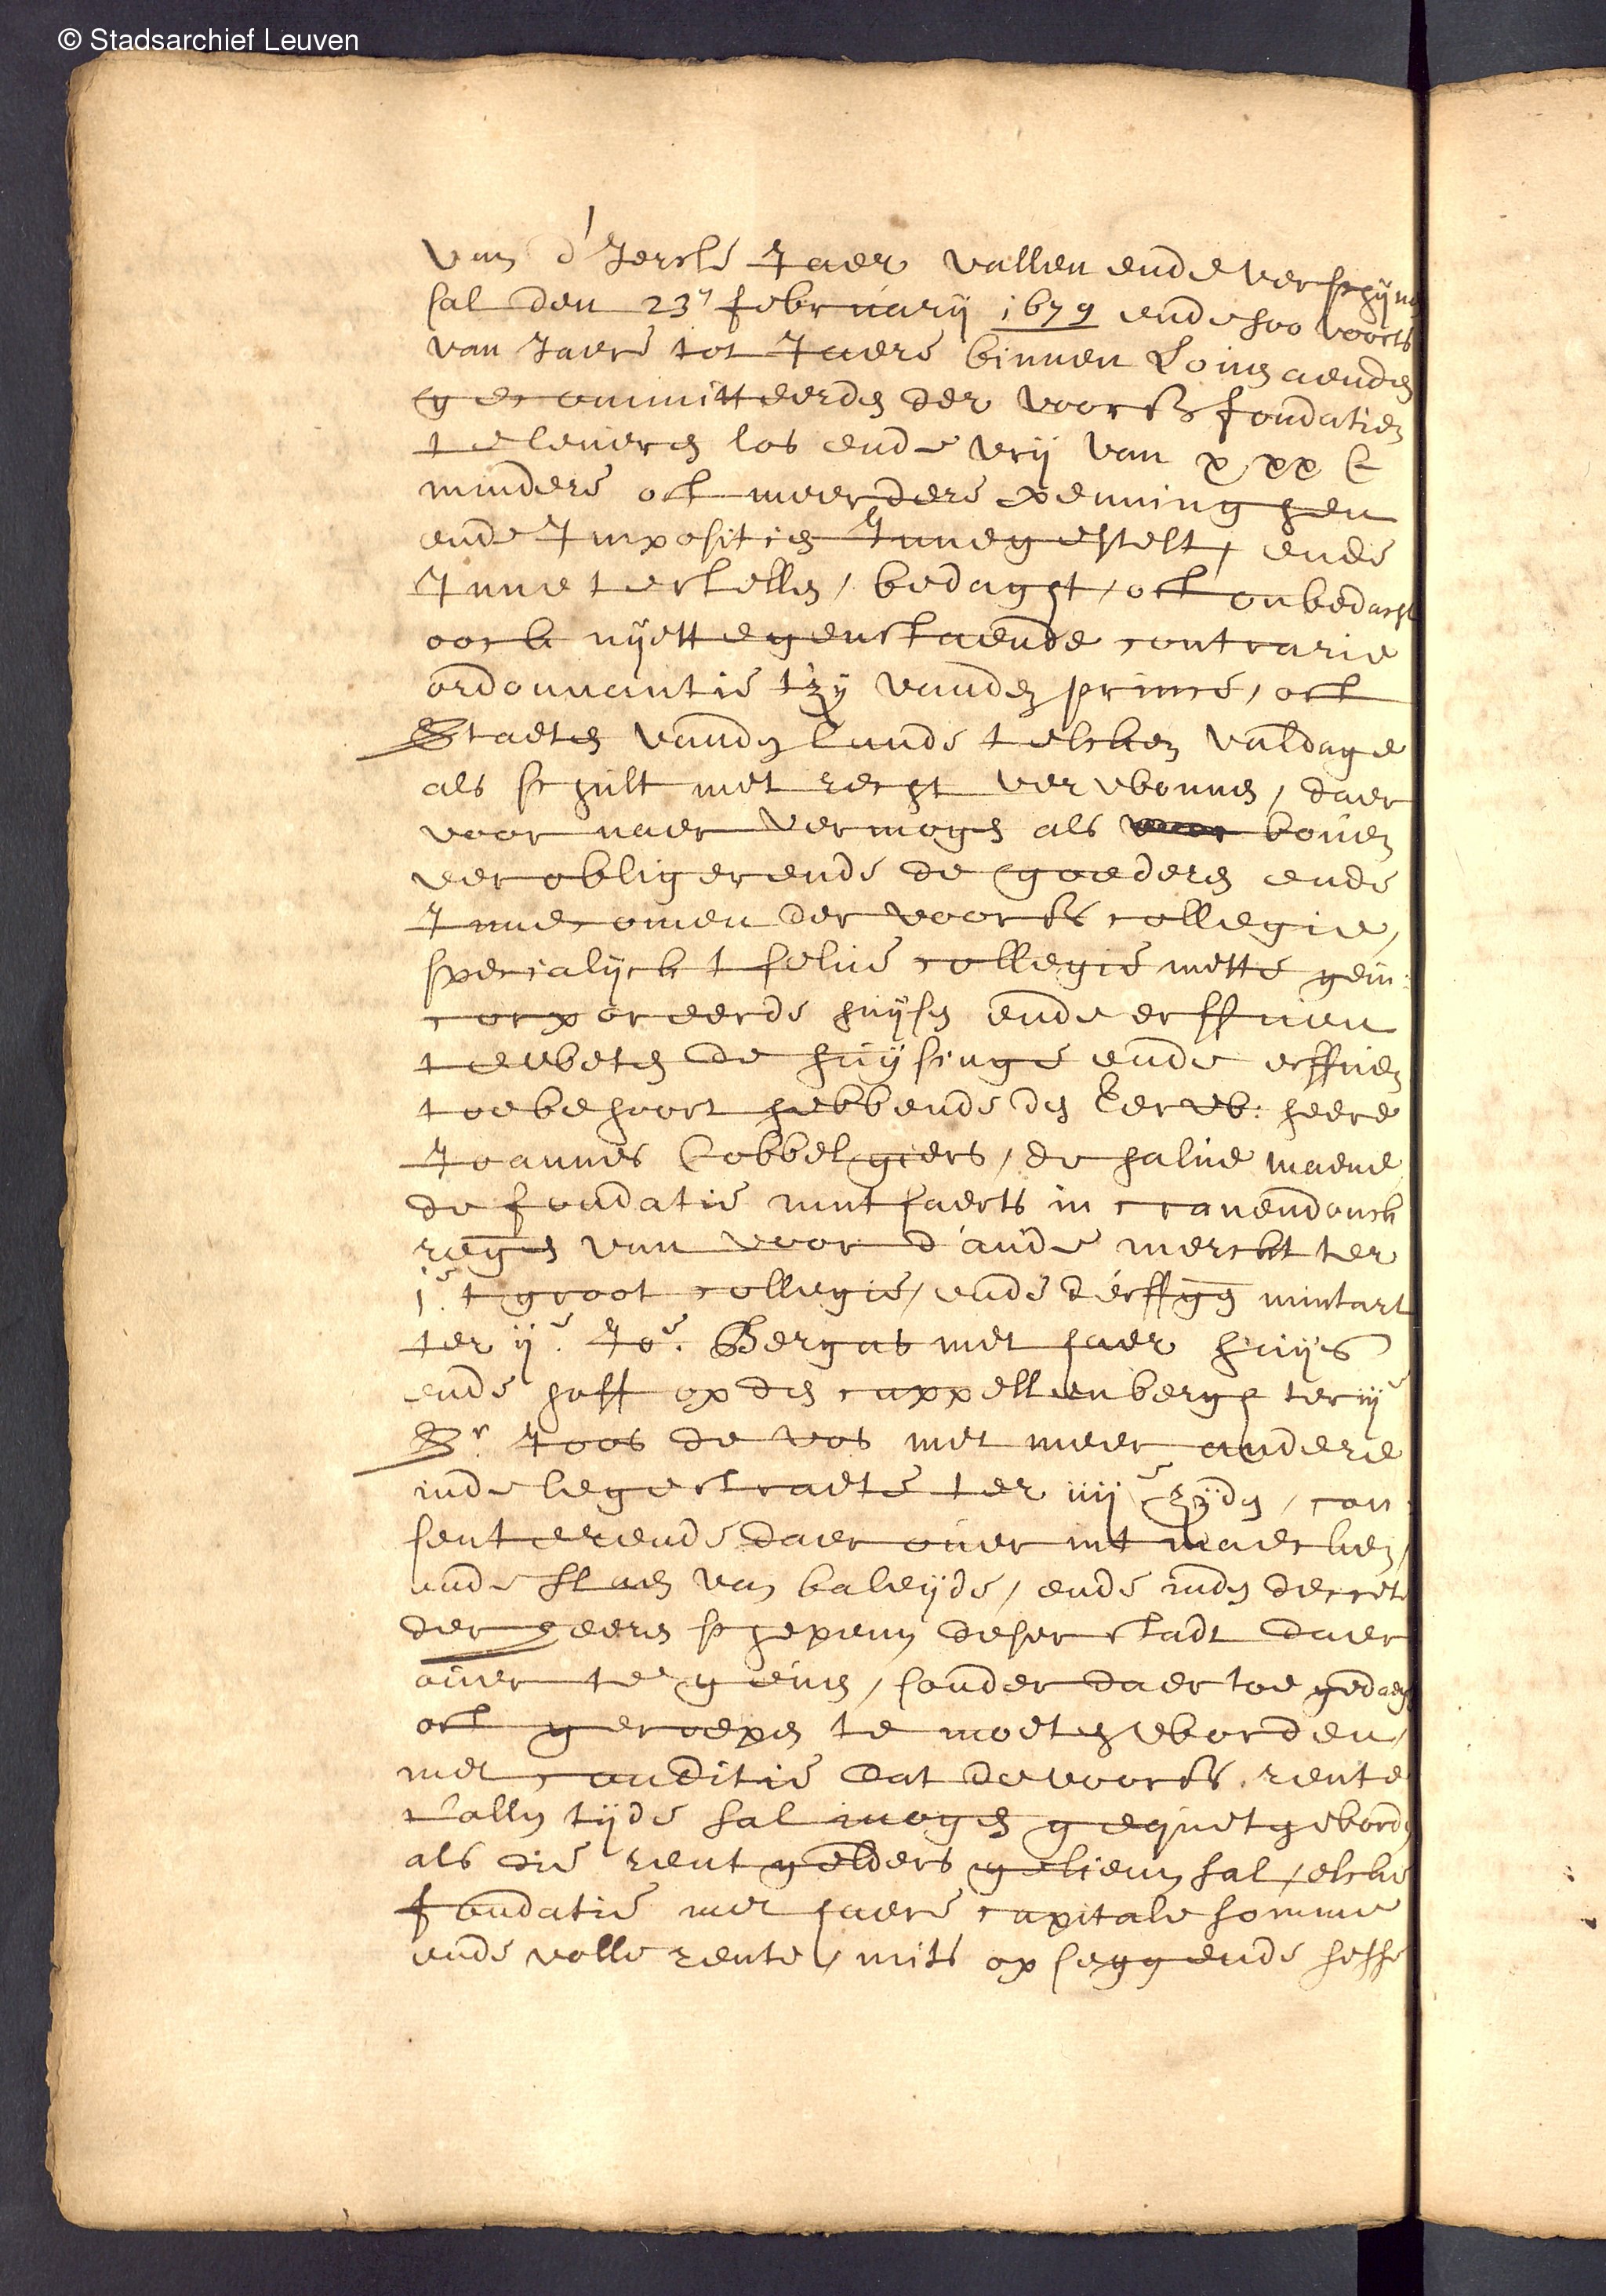 © Stadsarchief Leuven
van d'Ierste Jaer vallen ende verschijnen
sal den 23en february 1679 ende soo voorts
van Jaere tot Jaere binnen Loven aenden
gecommitteerden der voors fondatien
te leveren los ende vrij van x xx C
mindere oft meerdere penninghen
ende Impositien Innegestelt, ende
Inne te stellen, bedaght, oft onbedacht
oock nijettegenstaende contrarie
ordonnantie t'zij vanden prince, oft
Staeten vanden lande telcken valdage
als schult met recht verwonnen, daer
voor naer vermogen als boven
verobligerende de goederen ende
Innecomen der voors collegie,
specialijck t selve collegie mette gein:
corporeerde huijsen ende erffven
te weten de huijsinge ende erffven
toebehoort hebbende den Eerw: heere
Joannes Cobbelgiers, de halve maene
de fondatie in cranendonck
regen van voor d'aude merckt ter
je t groot collegie, ende d'erffgen mintart
ter ije Jor Bergas met haer huijs
ende hoff op den cappellenbergh ter iije
Sr Joos de vos met meer andere
inde legestraete ter iiije zijden, con:
senterende daer over int maecken,
ende slaen van beleyde, ende inden decrete
der heeren schepenen deser stadt daer
over te geven, sonder daer toe gedaeght
oft geroepen te moeten worden,
met conditie dat de voors. rente
t'allen tijde sal mogen gequetgeworden
als die rentgelders gelieven sal, elcke
fondatie met haere capitale somme
ende volle rente, mits op seggende sesse